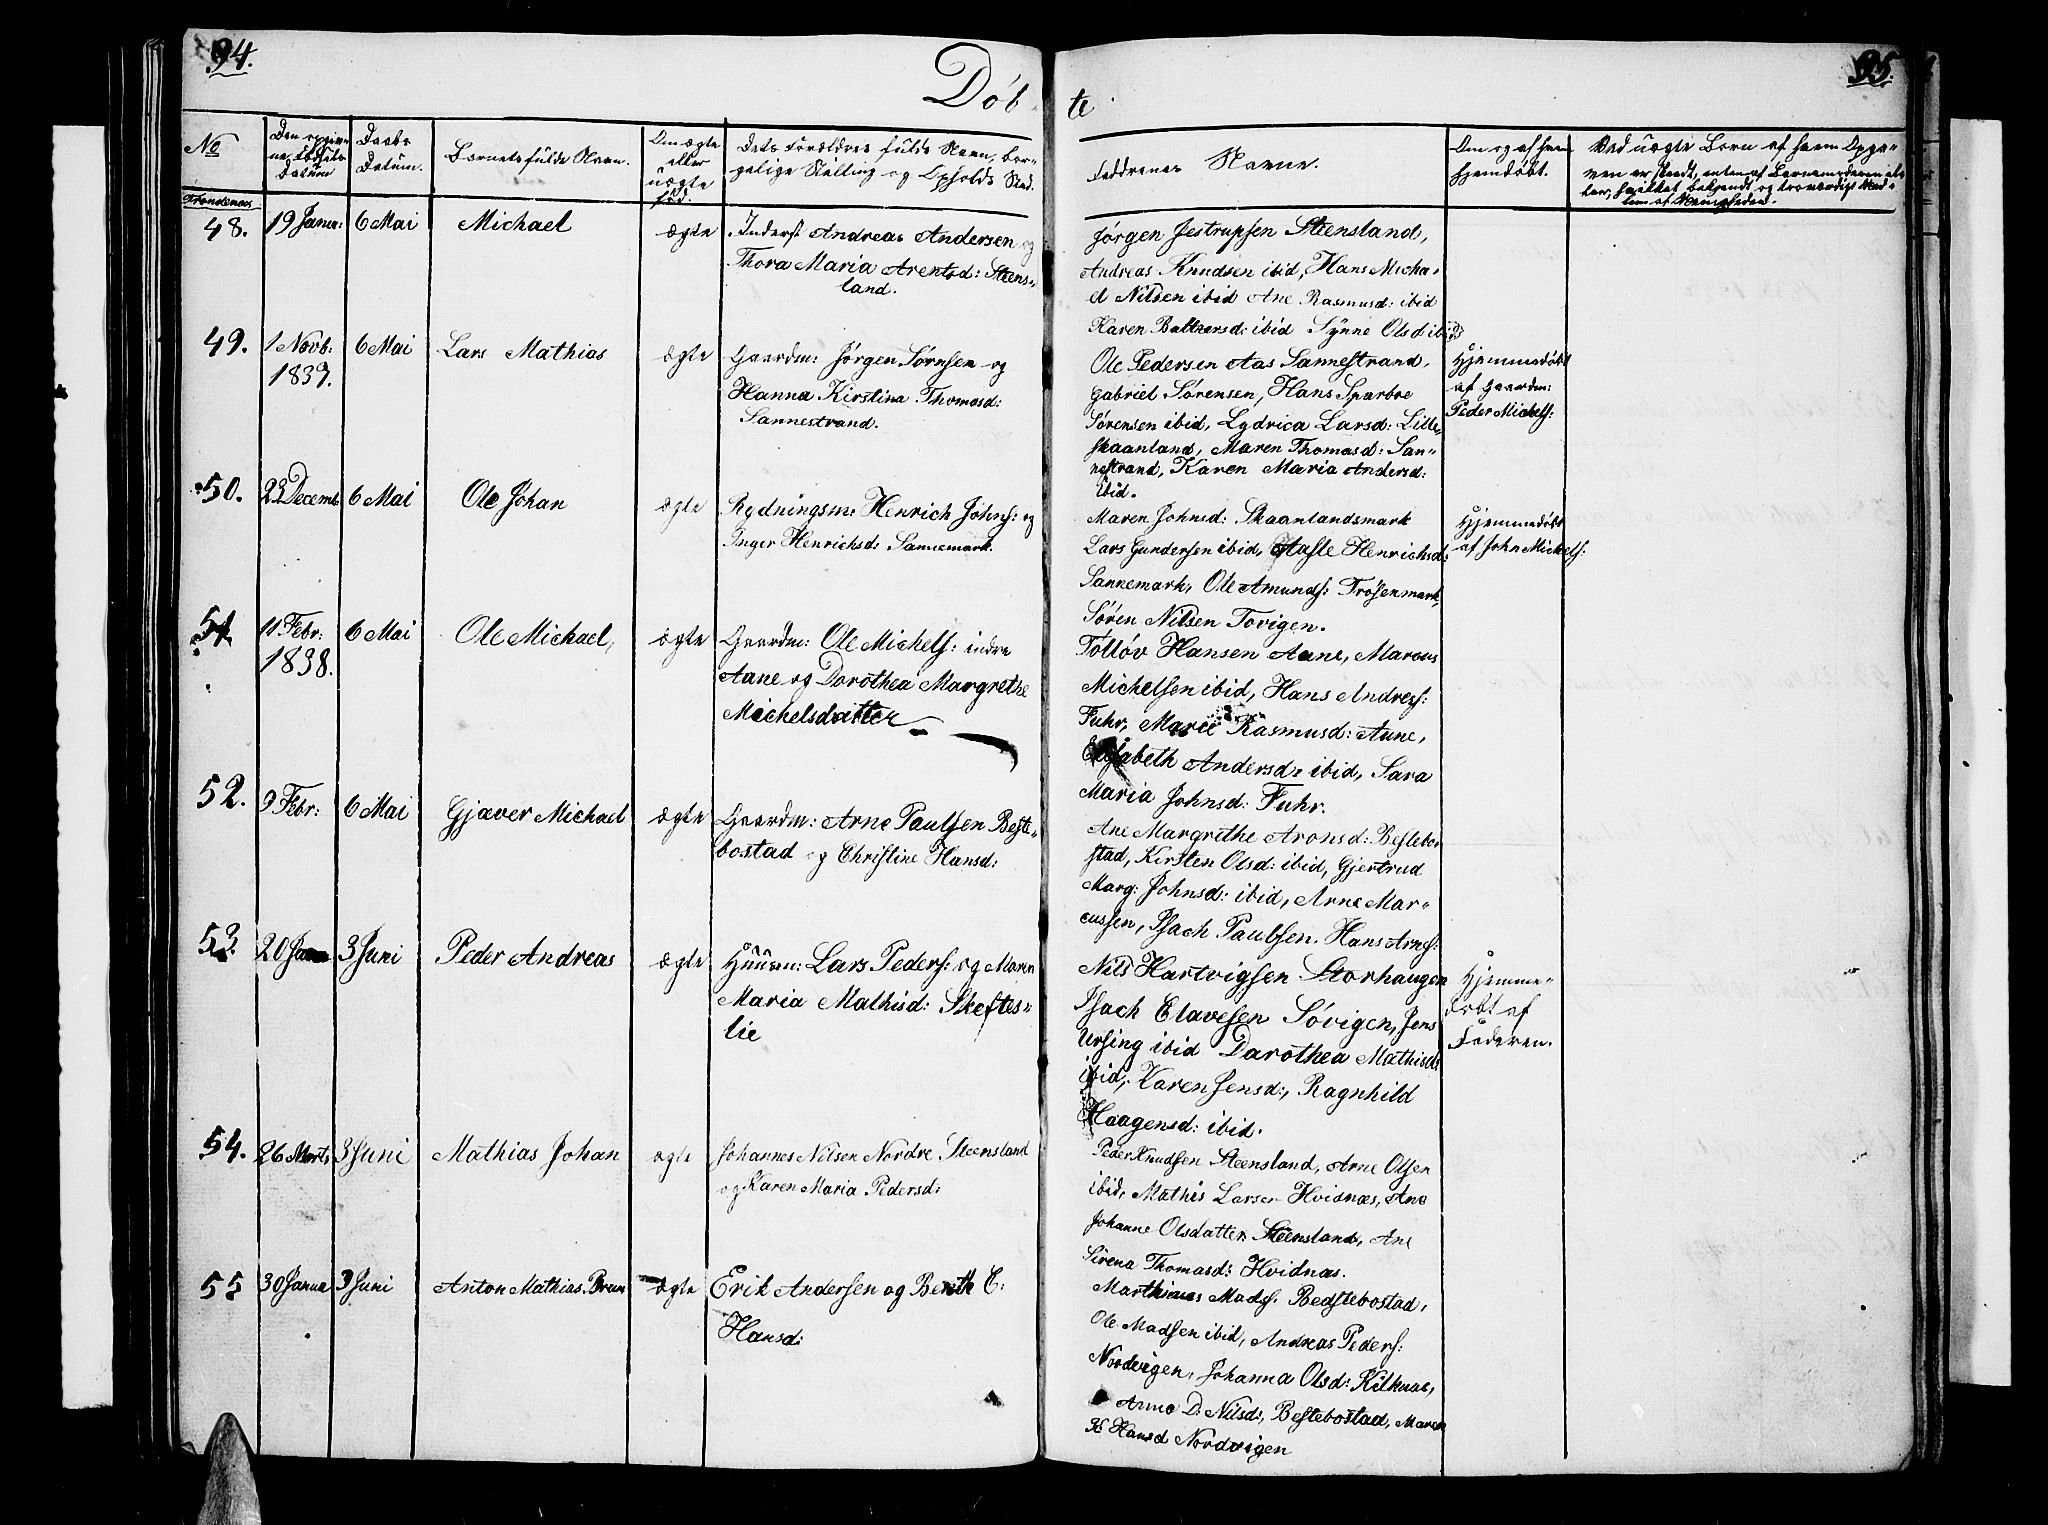 94.
95.
Døb-
te
No
Den opgiv-
ne Fødsels
Datum
Daabs
Datum.
Barnets fulde Navn.
Om ægte
eller
uægte
fød.
Dets Forældres fulde Navn, bor-
gelige Stilling og Opholds Sted.
Faddrenes Navne.
Om og af hvem
hjemdøbt.
Ved uægte Børn af hvem Opga-
ven er skeedt, enten af Barnemoderen el-
ler, hvilket bekjendt og troværdigt
Trondenæs
48.
19 Janu:
6 Mai
Michael
ægte
Inderst Andreas Andersen og
Thora Maria Arentsd: Steens-
land.
Jörgen Jestrupsen Steensland,
Andreas Knudsen ibid, Hans Micha-
el Nilsen ibid Ane Rasmusd: ibid
Karen Baltzersd: ibid Synne Olsd ibid
49.
1 Novb:
1837.
6 Mai
Lars Mathias
ægte
Gaardm: Jörgen Sörnsen og
Hanna Kirstina Thomasd:
Sannestrand.
Ole Pedersen Aas Sannestrand,
Gabriel Sörensen, Hans Sparboe
Sörensen ibid, Lydrica Larsd: Lille-
skaanland, Maren Thomasd: San-
nestrand, Karen Maria Andersd:
ibid.
Hjemmedøbt
af Gaardm:
Peder Michels:
50.
23 Decemb
6 Mai
Ole Johan
ægte
Rydningsm: Henrich Johns: og
Inger Henrichsd: Sannemark.
Maren Johnsd: Skaanlandsmark
Lars Gundersen ibid, Aasle Henrichsd:
Sannemark, Ole Amunds: Trösenmark,
Sören Nilsen Tovigen.
Hjemmedøbt
af John Michels:
51.
11 Febr:
1838.
6 Mai
Ole Michael,
ægte
Gaardm: Ole Michels: indre
Aane og Dorothea Margrethe
Michelsdatter
Tolløv Hansen Aane, Marcus
Michelsen ibid, Hans Andres:
Fuhr, Marie Rasmusd: Aune,
Elisabeth Andersd: ibid, Sara
Maria Johnsd: Fuhr.
52.
9 Febr:
6 Mai
Gjæver Michael
ægte
Gaardm: Arne Paulsen Beste-
bostad og Christine Hansd:
Ane Margrethe Aronsd: Bestebo-
stad, Kirsten Olsd: ibid, Gjertrud
Marg: Johnsd: ibid, Arne Mar-
cussen, Isach Paulsen. Hans Arns:
53.
20 Janu
3 Juni
Peder Andreas
ægte
Huusm: Lars Peders: og Maren
Maria Mathisd: Skeftes-
lie
Nils Hartvigsen Storhaugen
Isach Elavesen Sövigen, Jens
Ursing ibid Darothea Mathisd:
ibid, Karen Jensd:, Ragnhild
Haagensd: ibid.
Hjemme-
døbt af
Faderen.
54.
26 Marts
3 Juni
Mathias Johan
ægte
Johannes Nilsen Nordre Steensland
og Karen Maria Pedersd:
Peder Knudsen Steensland, Arne Olsen
ibid, Mathis Larsen Hvidnæs, Ane
Johanne Olsdatter Steensland, Ane
Sirena Thomasd: Hvidnæs.
55
30 Janua
3 Juni
Anton Mathias Bruun
ægte
Erik Andersen og Berith E:
Hansd:
Marthinus Mads. Bedstebostad,
Ole Madsen ibid, Andreas Peders:
Nordvigen, Johanna Olsd: Kilknæ,
Anne D: Nilsd:, Bestebostad, Maren
K Hansd Nordvigen